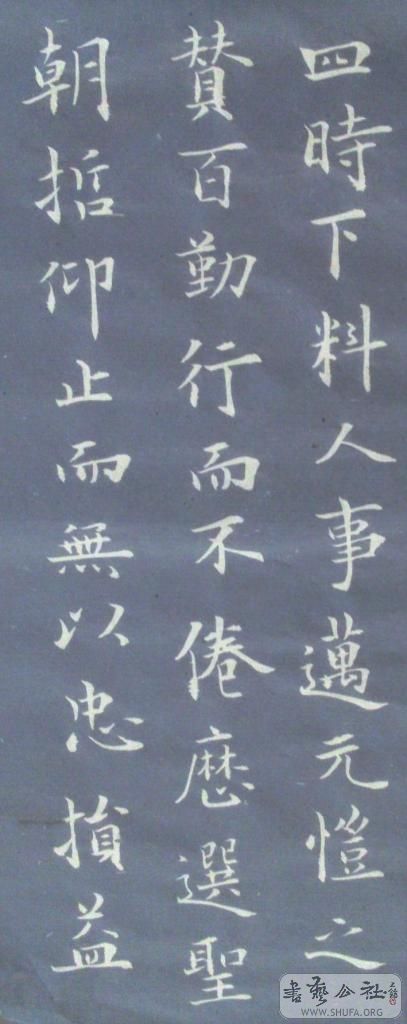 四時下料人事邁元愷之
賛百勤行而不倦歷選聖
朝哲仰止而無以忠損益
書藝公社
WWW.SHUFA.ORG